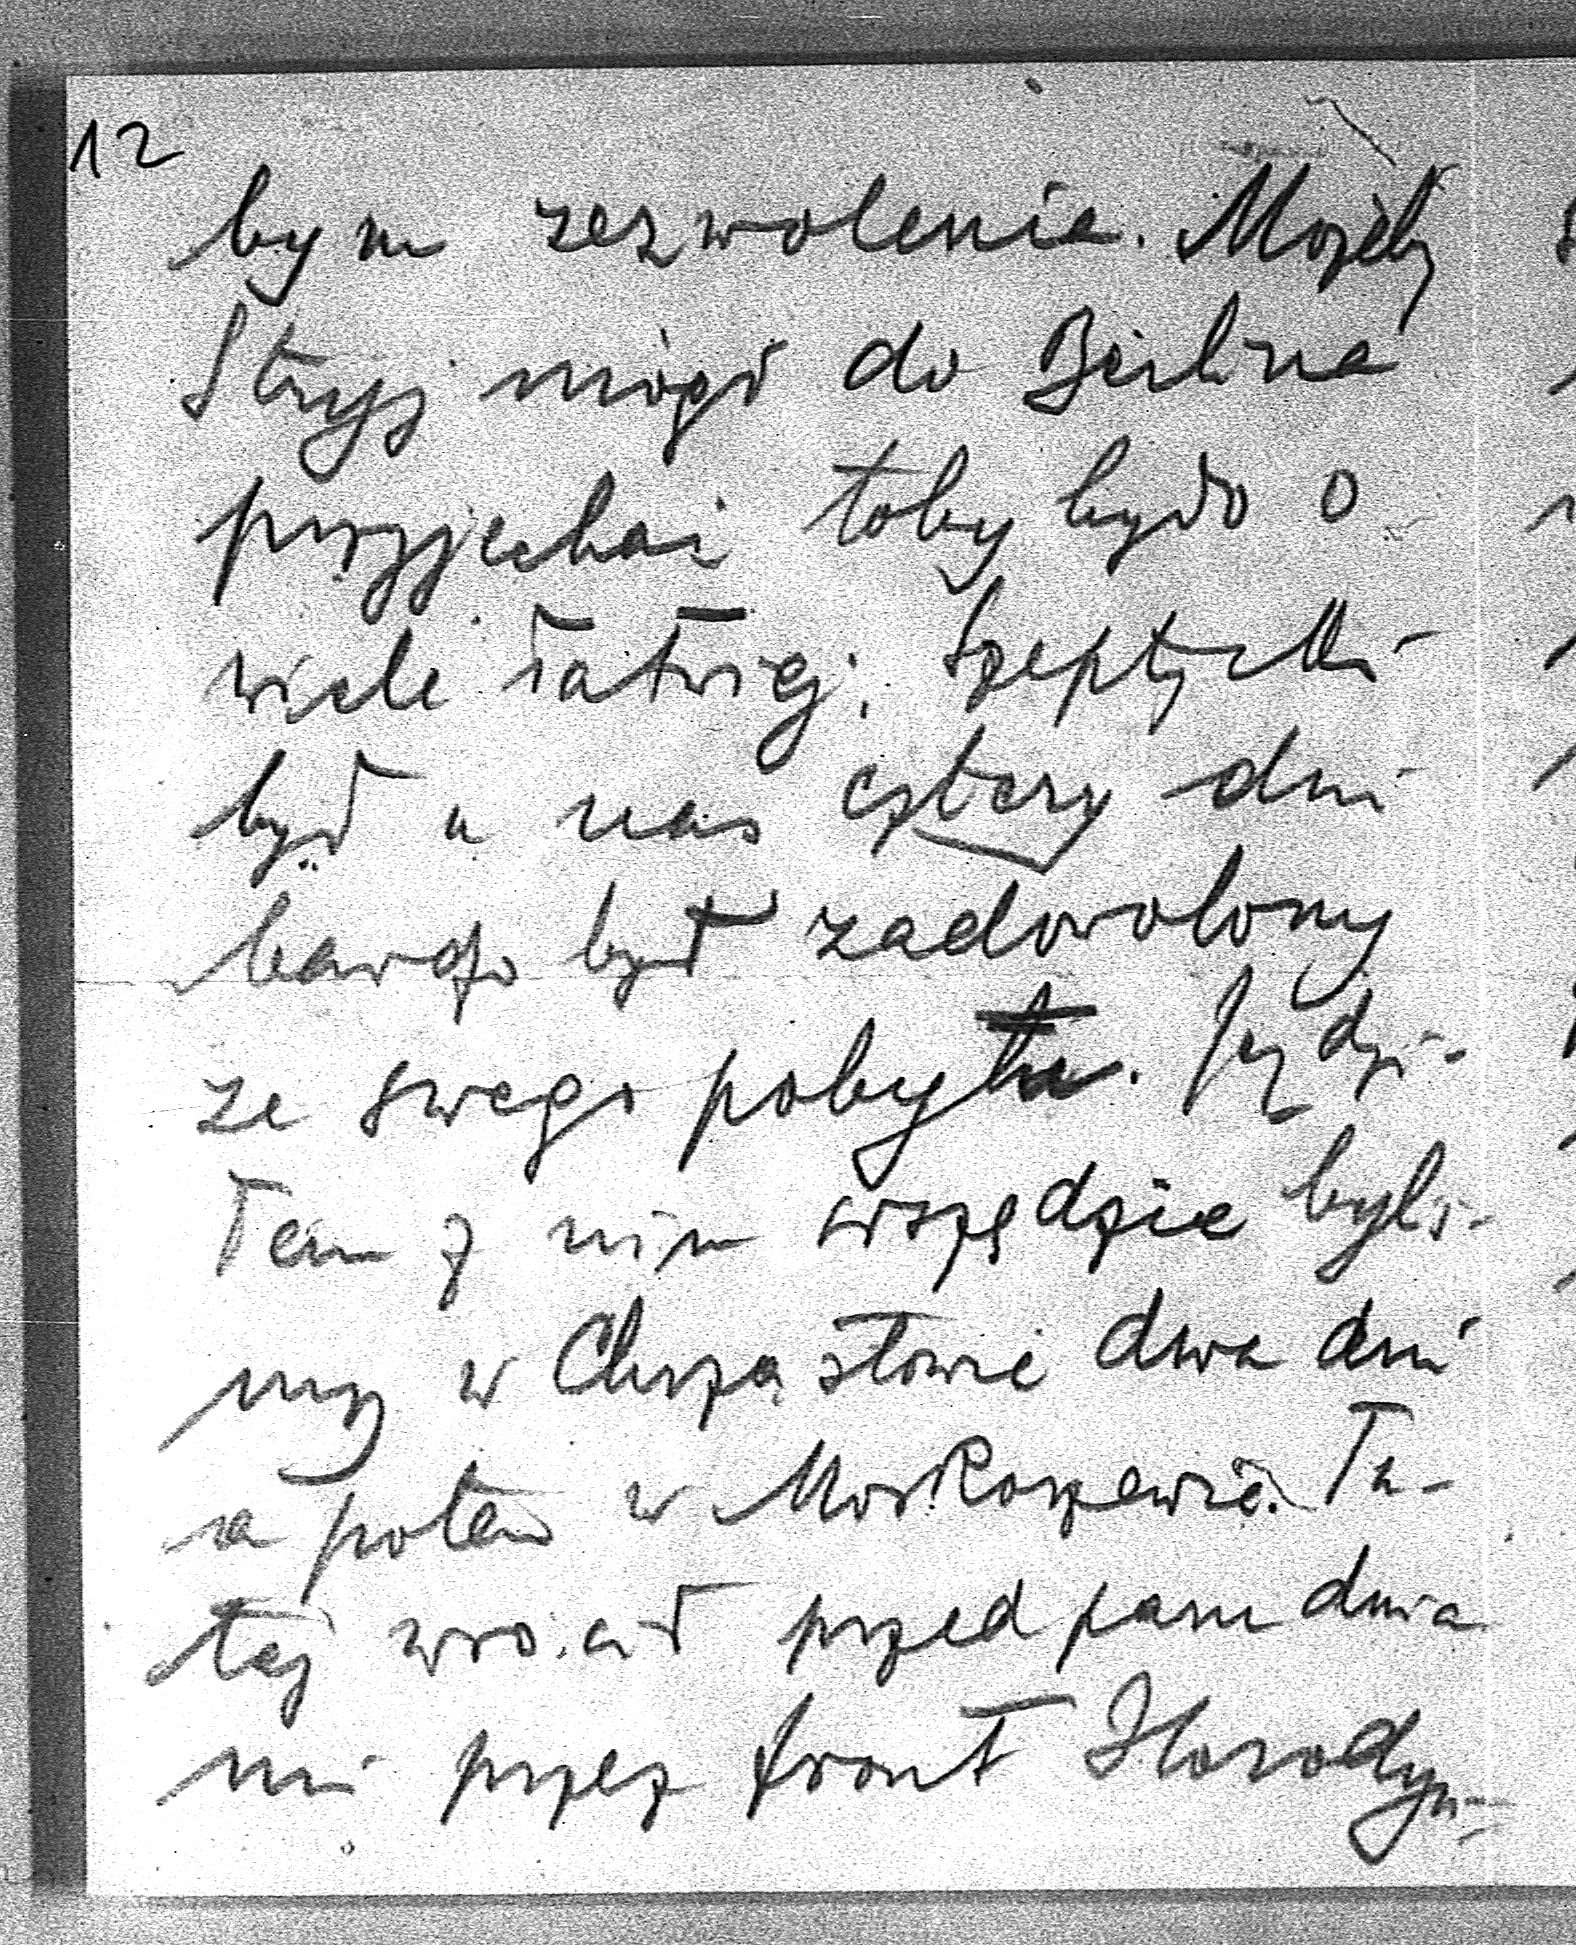 12
bym zezwolenie. Możeby
Stryj mógł do Berlina
przyjechać toby było o
wiele łatwiej; Szeptycki
był u nas cztery dni
bardzo był zadowolony
ze swego pobytu. Jeździ-
łem z nim wszędzie byli-
my w Chrząstowie dwa dni
a potem w Morkoszewie. Tu-
taj wrócił przed paru dnia
mi przez front Horodyń-